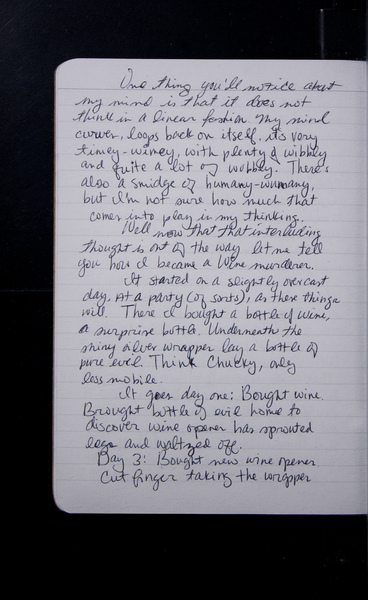 One thing you'll notice about
my mind is that it does not
think in a linear fashion my mind
curves, loops back on itself. its very
timey-wimey, with plenty of wibbley
and quite a lot of wobbley. There's
also a smidge of humany-wumany,
but I'm not sure how much that
comes into play in my thinking.
Well now that that interluding
thought is out of the way let me tell
you how I became a wine murderer.
It started on a slightly overcast
day. At a party (of sorts), as there things
will. There I bought a bottle of wine,
a surprise bottle. Underneath the
shiny silver wrapper lay a bottle of
pure evil. Think Chucky, only
less mobile.
It goes day one: Bought wine.
Brought bottle of evil home to
discover wine opener has sprouted
legs and waltzed off.
Day 3: Bought new wine opener
Cut finger taking the wrapper